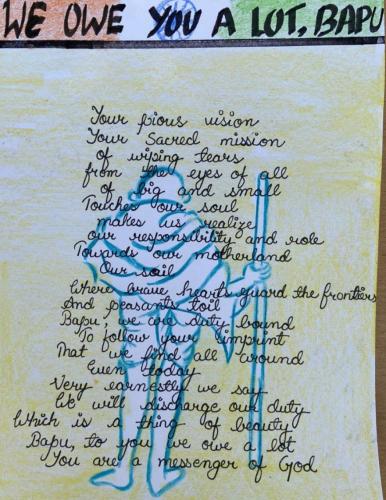 WE OWE YOU A LOT, BAPU
Your pious vision
Your Sacred mission
of wiping tears
from the eyes of all
of big and small
Touches our soul
makes us realize
our responsibility and role
Towards our motherland
Our soil
Where brave hearts guard the frontiers
And peasants toil
Bapu, we are duty bound
To follow your imprint
That we find all around
Even today
Very earnestly we say
We will discharge our duty
Which is a thing of beauty
Bapu, to you we owe a lot
You are a messenger of God